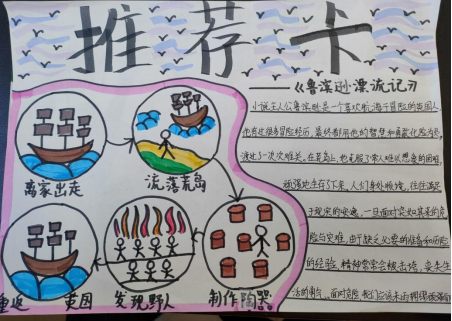 推荐卡
——《鲁滨逊漂流记》
小说主人公鲁滨逊是一个喜欢航海于冒险的英国人
他有过很多冒险经历,最终都用他的智慧和勇敢化险为夷,
渡过了一次次难关。在荒岛上,也克服了常人难以想象的困难,
顽强地生存了下来。人们身处顺境,往往满足
于现实的安逸,一旦面对突如其来的危
险与灾难,由于缺乏必要的准备和历险
的经验,精神常常会被击垮,丧失生
活的勇气。面对危险,我们应该
离家出走
流落荒岛
制作陶器
发现野人
重返英国